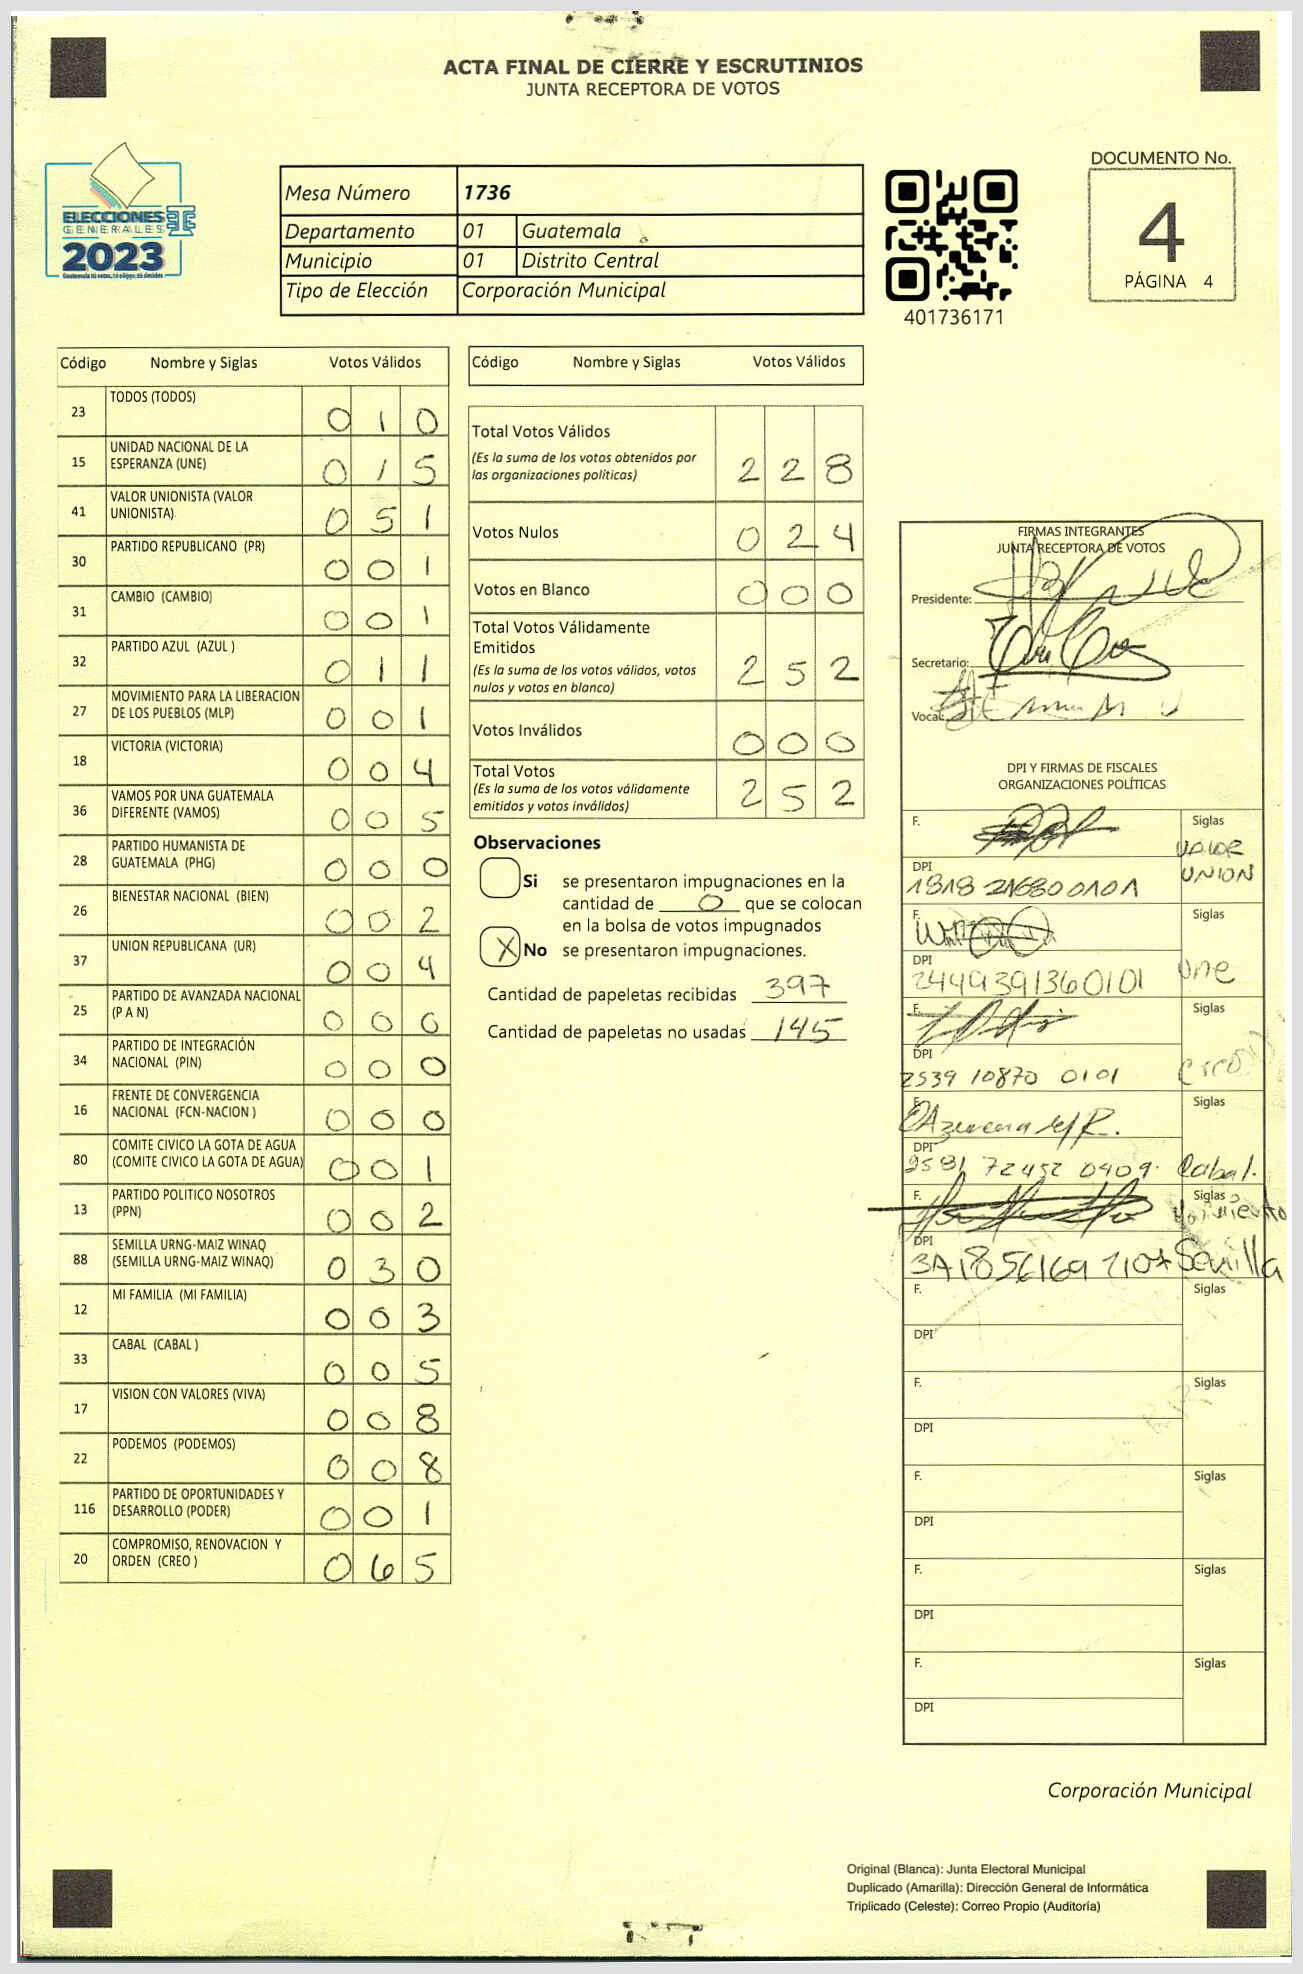 ACTA FINAL DE CIERRE Y ESCRUTINIOS
JUNTA RECEPTORA DE VOTOS
ELECCIONES
GENERALES
2023
Guatemala tú votas, tú eliges, tú decides
Mesa Número 1736
Departamento 01 Guatemala
Municipio 01 Distrito Central
Tipo de Elección Corporación Municipal
401736171
DOCUMENTO No.
4
PÁGINA 4
Código Nombre y Siglas Votos Válidos
23 TODOS (TODOS) 0 1 0
15 UNIDAD NACIONAL DE LA
ESPERANZA (UNE) 0 1 5
41 VALOR UNIONISTA (VALOR
UNIONISTA) 0 5 1
30 PARTIDO REPUBLICANO (PR) 0 0 1
31 CAMBIO (CAMBIO) 0 0 1
32 PARTIDO AZUL (AZUL ) 0 1 1
27 MOVIMIENTO PARA LA LIBERACION
DE LOS PUEBLOS (MLP) 0 0 1
18 VICTORIA (VICTORIA) 0 0 4
36 VAMOS POR UNA GUATEMALA
DIFERENTE (VAMOS) 0 0 5
28 PARTIDO HUMANISTA DE
GUATEMALA (PHG) 0 0 0
26 BIENESTAR NACIONAL (BIEN) 0 0 2
37 UNION REPUBLICANA (UR) 0 0 4
25 PARTIDO DE AVANZADA NACIONAL
(P A N) 0 0 0
34 PARTIDO DE INTEGRACIÓN
NACIONAL (PIN) 0 0 0
16 FRENTE DE CONVERGENCIA
NACIONAL (FCN-NACION ) 0 0 0
80 COMITE CIVICO LA GOTA DE AGUA
(COMITE CIVICO LA GOTA DE AGUA) 0 0 1
13 PARTIDO POLITICO NOSOTROS
(PPN) 0 0 2
88 SEMILLA URNG-MAIZ WINAQ
(SEMILLA URNG-MAIZ WINAQ) 0 3 0
12 MI FAMILIA (MI FAMILIA) 0 0 3
33 CABAL (CABAL ) 0 0 5
17 VISION CON VALORES (VIVA) 0 0 8
22 PODEMOS (PODEMOS) 0 0 8
116 PARTIDO DE OPORTUNIDADES Y
DESARROLLO (PODER) 0 0 1
20 COMPROMISO, RENOVACION Y
ORDEN (CREO ) 0 6 5
Código Nombre y Siglas Votos Válidos
Total Votos Válidos
(Es la suma de los votos obtenidos por
las organizaciones políticas) 2 2 8
Votos Nulos 0 2 4
Votos en Blanco 0 0 0
Total Votos Válidamente
Emitidos
(Es la suma de los votos válidos, votos
nulos y votos en blanco) 2 5 2
Votos Inválidos 0 0 0
Total Votos
(Es la suma de los votos válidamente
emitidos y votos inválidos) 2 5 2
Observaciones
Si se presentaron impugnaciones en la
cantidad de 0 que se colocan
en la bolsa de votos impugnados
X No se presentaron impugnaciones.
Cantidad de papeletas recibidas 397
Cantidad de papeletas no usadas 145
FIRMAS INTEGRANTES
JUNTA RECEPTORA DE VOTOS
Presidente:
Secretario:
Vocal:
DPI Y FIRMAS DE FISCALES
ORGANIZACIONES POLÍTICAS
F. Siglas
VALOR
UNION
DPI
1818 21680 0101
F. Siglas
DPI
2449391360101 une
F. Siglas
DPI
2539 10870 0101 Creo
F. Siglas
Azucena
DPI
72452 0409 Cabal.
F. Siglas
DPI
Semilla
F. Siglas
DPI
F. Siglas
DPI
F. Siglas
DPI
F. Siglas
DPI
F. Siglas
DPI
Corporación Municipal
Original (Blanca): Junta Electoral Municipal
Duplicado (Amarilla): Dirección General de Informática
Triplicado (Celeste): Correo Propio (Auditoría)